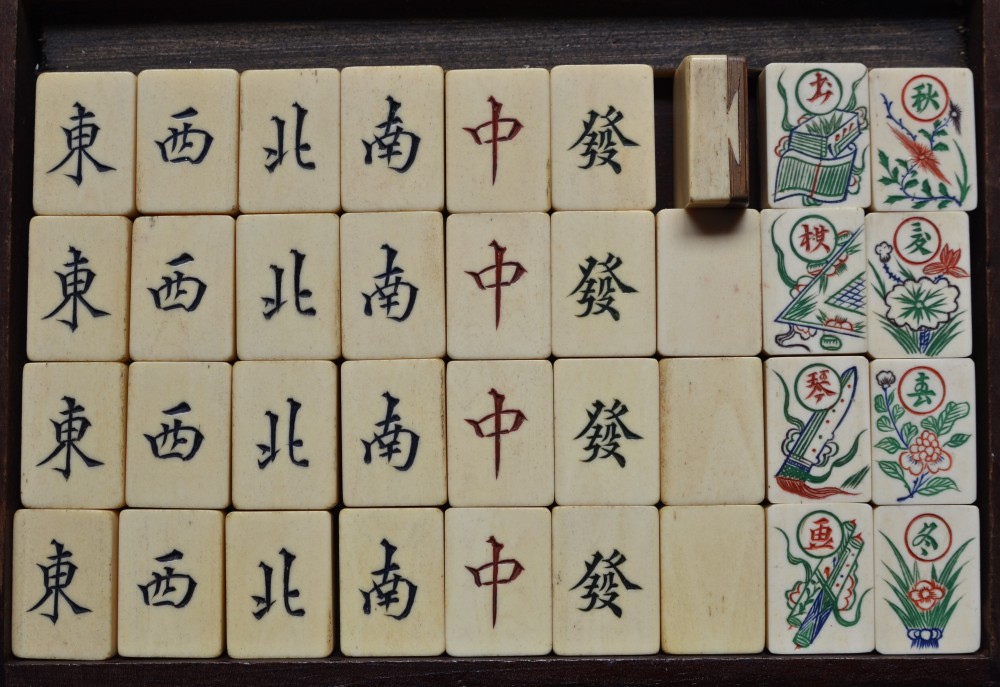 東 西 北 南 中 發 书 秋
東 西 北 南 中 發 棋 夏
東 西 北 南 中 發 琴 春
東 西 北 南 中 發 画 冬